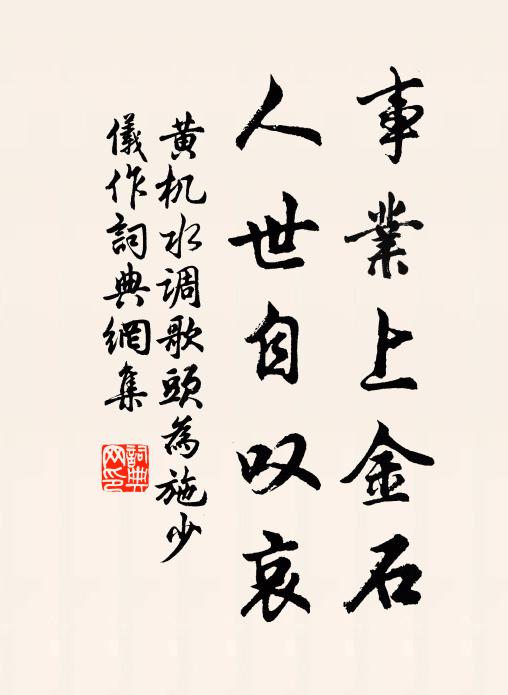 事業上金石
人世自叹哀
黄机水调歌頭為施少
儀作詞典網集
詞典
网印